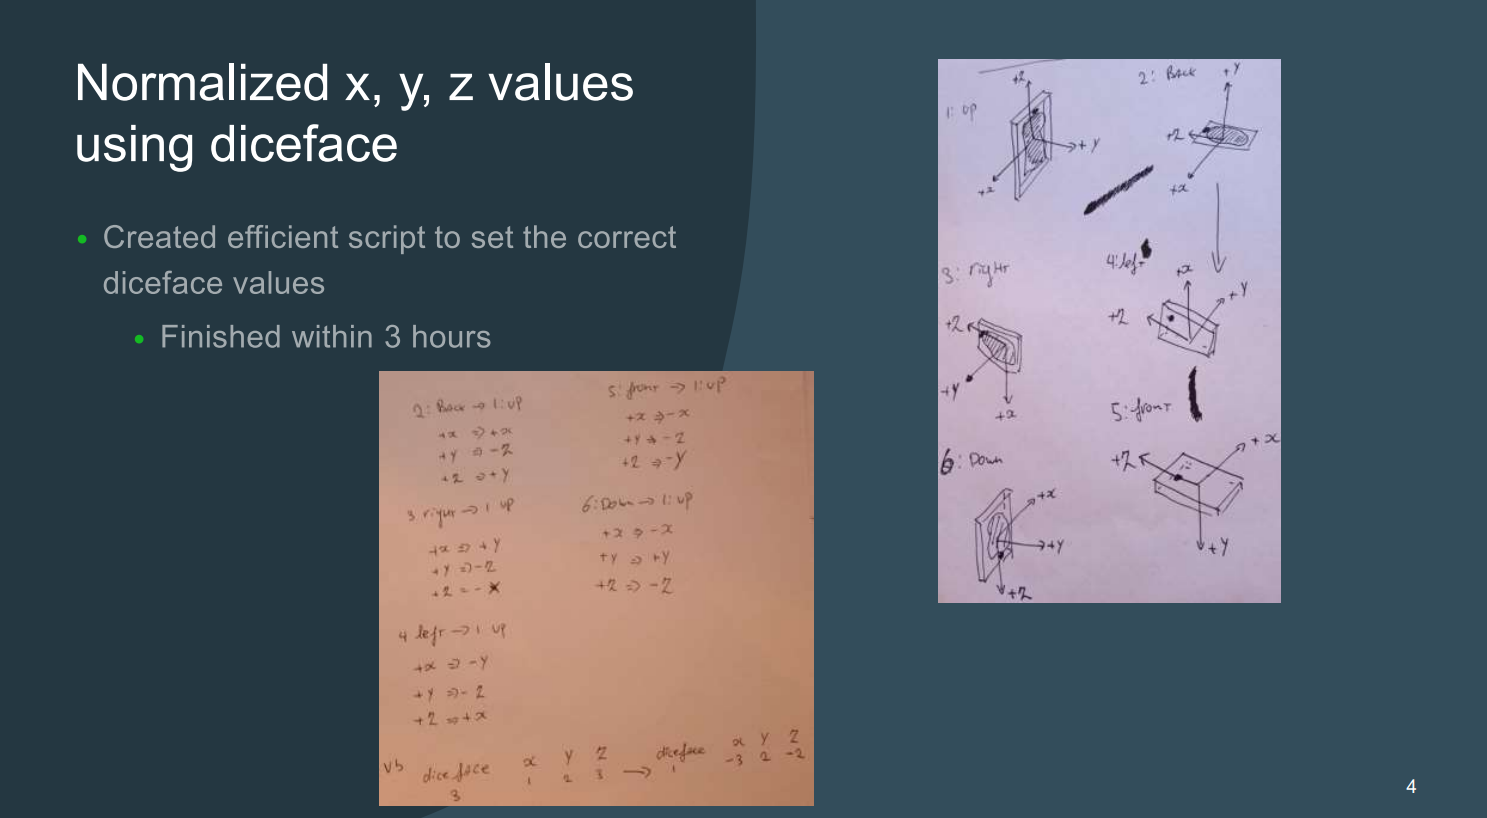 Normalized x, y, z values
using diceface
• Created efficient script to set the correct
diceface values
• Finished within 3 hours
2: Back → 1: up
+x ⇒ +x
+y ⇒ -z
+z ⇒ +y
3 right → 1 up
+x ⇒ +y
+y ⇒ -z
+z = - x
4 left → 1 up
+x ⇒ -y
+y ⇒ - z
+z ⇒ +x
5: front → 1: up
+x ⇒ -x
+y ⇒ -z
+z ⇒ -y
6: Down → 1: up
+x ⇒ -x
+y ⇒ +y
+z ⇒ -z
Vb
diceface x y z → diceface x y z
3 1 2 3 1 -3 2 -2
1: up
+z
+y
+x
2: Back
+y
+z
+x
3: right
+z
+y
+x
4: left
+x
+y
+z
5: front
+x
+z
+y
6: Down
+x
+y
+z
4